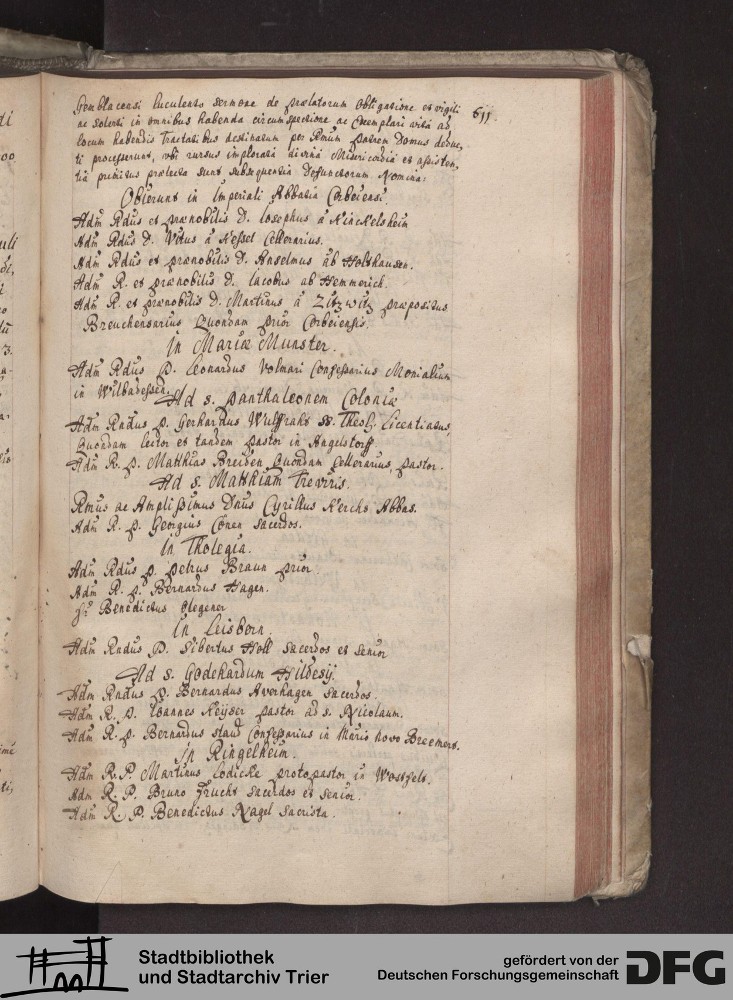 611.
Gemblacensi luculento sermone de praelatorum obligatione et vigili
ac solerti in omnibus habenda circumspectione ac Exemplari vita ad
locum habendis Tractatibus destinatum per Rmum Patrem Domus deduc,
ti processerunt, ubi rursus implorata divina Misericordia et assisten,
tia primitus praelecta sunt subsequentia Defunctorum Nomina:
Obierunt in Imperiali Abbatia Corbeiensi.
Adm Rdus et praenobilis D. Josephus á Kinckelsheim
Adm Rdus D. Vitus á Kessel Cellerarius.
Adm Rdus et praenobilis D. Anselmus ab Holthausen.
Adm R. et praenobilis D. Jacobus ab Hemmerich.
Adm R. et praenobilis D. Martinus á Zitzwitz praepositus
Breuchensarius quondam prior Corbeiensis.
In Mariae Munster.
Adm Rdus P. Leonardus Volmari Confessarius Monialium
in Wilbadessen.
Ad S. Panthaleonem Coloniae
Adm Rndus P. Gerhardus Wulffraht SS. Theol. Licentiatus,
quondam lector et tandem pastor in Angelstorff
Adm R. P. Matthias Breiden quondam Cellerarius, pastor.
Ad S. Matthiam Treviris.
Rmus ac Amplissimus Dnus Cyrillus Kerchs Abbas.
Adm R. P. Georgius Conen Sacerdos.
In Tholegia.
Adm Rdus P. Petrus Braun prior.
Adm R. P. Bernardus Hagen.
Fr. Benedictus Olegener
In Leisborn.
Adm Rndus P. Sibertus Holl Sacerdos et Senior
Ad S. Godehardum Hildesij.
Adm Rndus P. Bernardus Averhagen Sacerdos.
Adm R. P. Joannes Keyser pastor ad S. Nicolaum.
Adm R. P. Bernardus Confessarius in Maris novo Breemers.
In Ringelheim.
Adm R. P. Martinus Lodicke protopastor in
Adm R. P. Bruno Frucht Sacerdos et Senior.
Adm R. P. Benedictus Nagel Sacrista.
Stadtbibliothek
und Stadtarchiv Trier
gefördert von der
Deutschen Forschungsgemeinschaft
DFG